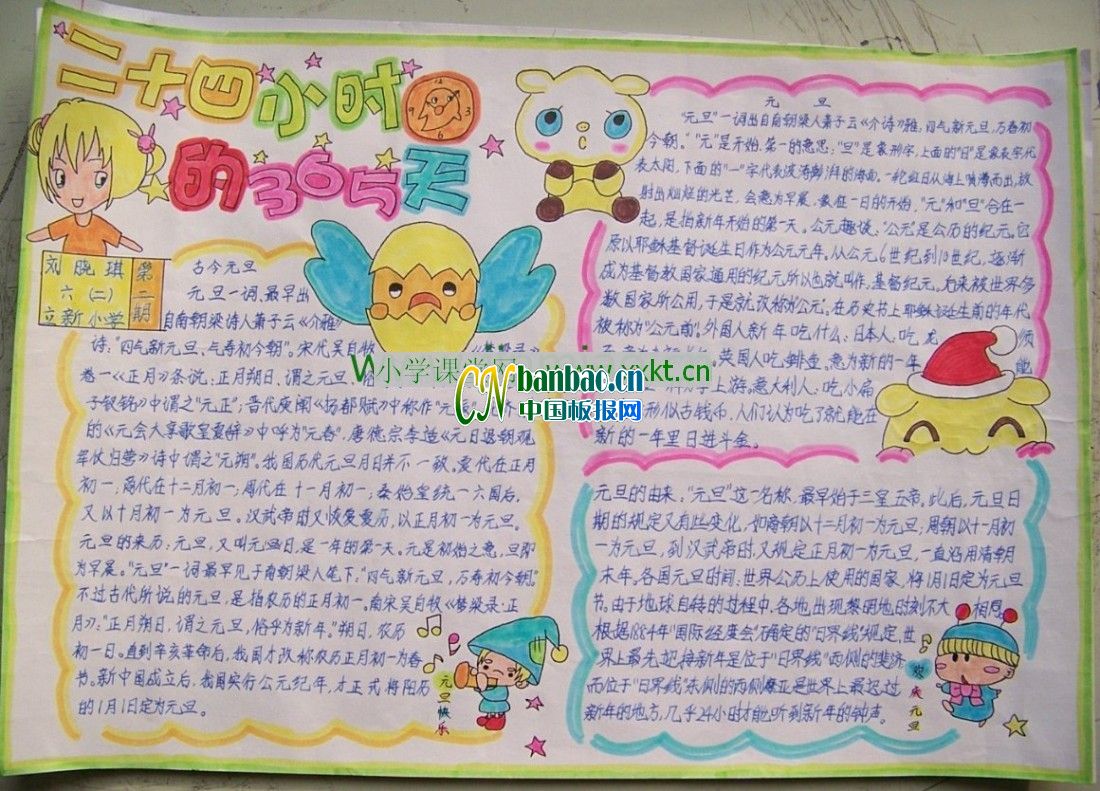 二十四小时
的365天
刘晓琪
六（二）
立新小学
第二期
古今元旦
元旦一词、最早出
自南朝梁诗人萧子云《介雅》
诗："四气新元旦、万寿初今朝"。宋代吴自牧
卷一《正月》条说：正月朔日，谓之元旦，
子钗铭》中谓之"元正"；晋代庾阐《扬都赋》中称作
的《元会大享歌皇夏辞》中呼为"元春"，唐德宗李适《元日退朝观
军仗归营》诗中谓之"元朔"。我国历代元旦月日并不一致。夏代在正月
初一，商代在十二月初一；周代在十一月初一；秦始皇统一六国后，
又以十月初一为元旦。汉武帝时又恢复夏历，以正月初一为元旦。
元旦的来历：元旦，又叫元旦日，是一年的第一天。元是初始之意，旦即
为早晨。"元旦"一词最早见于南朝梁人笔下："四气新元旦，万寿初今朝。"
不过古代所说的元旦，是指农历的正月初一。南宋吴自牧《梦梁录·正
月》："正月朔日，谓之元旦，俗乎为新年。"朔日，农历
初一日。直到辛亥革命后，我国才改称农历正月初一为春
节。新中国成立后，我国实行公元纪年，才正式将阳历
的1月1日定为元旦。
元旦快乐
元 旦
"元旦"一词出自南朝梁人萧子云《介诗》雅，四气新元旦，万春初
今朝。"元"是开始、第一的意思，"旦"是象形字，上面的"日"是象表字代
表太阳，下面的"一"字代表波涛澎湃的海面。一轮红日从海上喷薄而出，放
射出灿烂的光芒，会意为早晨，象征一日的开始，"元"和"旦"合在一
起，是指新年开始的第一天。公元趣谈："公元"是公历的纪元。它
原以耶稣基督诞生日作为公元元年，从公元6世纪到10世纪，逐渐
成为基督教国家通用的纪元所以也就叫作，基督纪元。后来被世界多
数国家所公用，于是就改称为公元。在历史书上耶稣诞生前的年代
被称为"公元前"。外国人新年吃什么：日本人：吃龙须
英国人吃鲱鱼，意为新的一年能
力争上游。意大利人：吃小扁
形似古钱币，人们认为吃了就能在
新的一年里日进斗金。
元旦的由来，"元旦"这一名称，最早始于三皇五帝。此后，元旦日
期的规定又有些变化，如商朝以十二月初一为元旦，周朝以十一月初
一为元旦，到汉武帝时，又规定正月初一为元旦，一直沿用清朝
末年。各国元旦时间：世界公历上使用的国家，将1月1日定为元旦
节。由于地球自转的过程中，各地出现黎明地时刻不大相同。
根据1884年"国际经度会"确定的"日界线"规定，世
界上最先迎接新年是位于"日界线"西侧的斐济
而位于"日界线"东侧的西侧摩亚是世界上最迟过
新年的地方，几乎24小时才能听到新年的钟声。
欢庆元旦
小学课堂网 www.xxkt.cn
CN banbao.cn
中国板报网